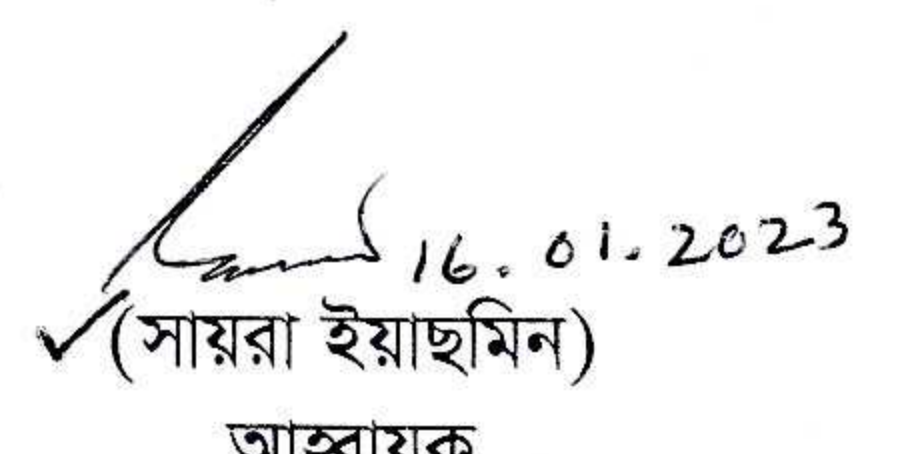 16.01.2023
(সায়রা ইয়াছমিন)
আহবায়ক